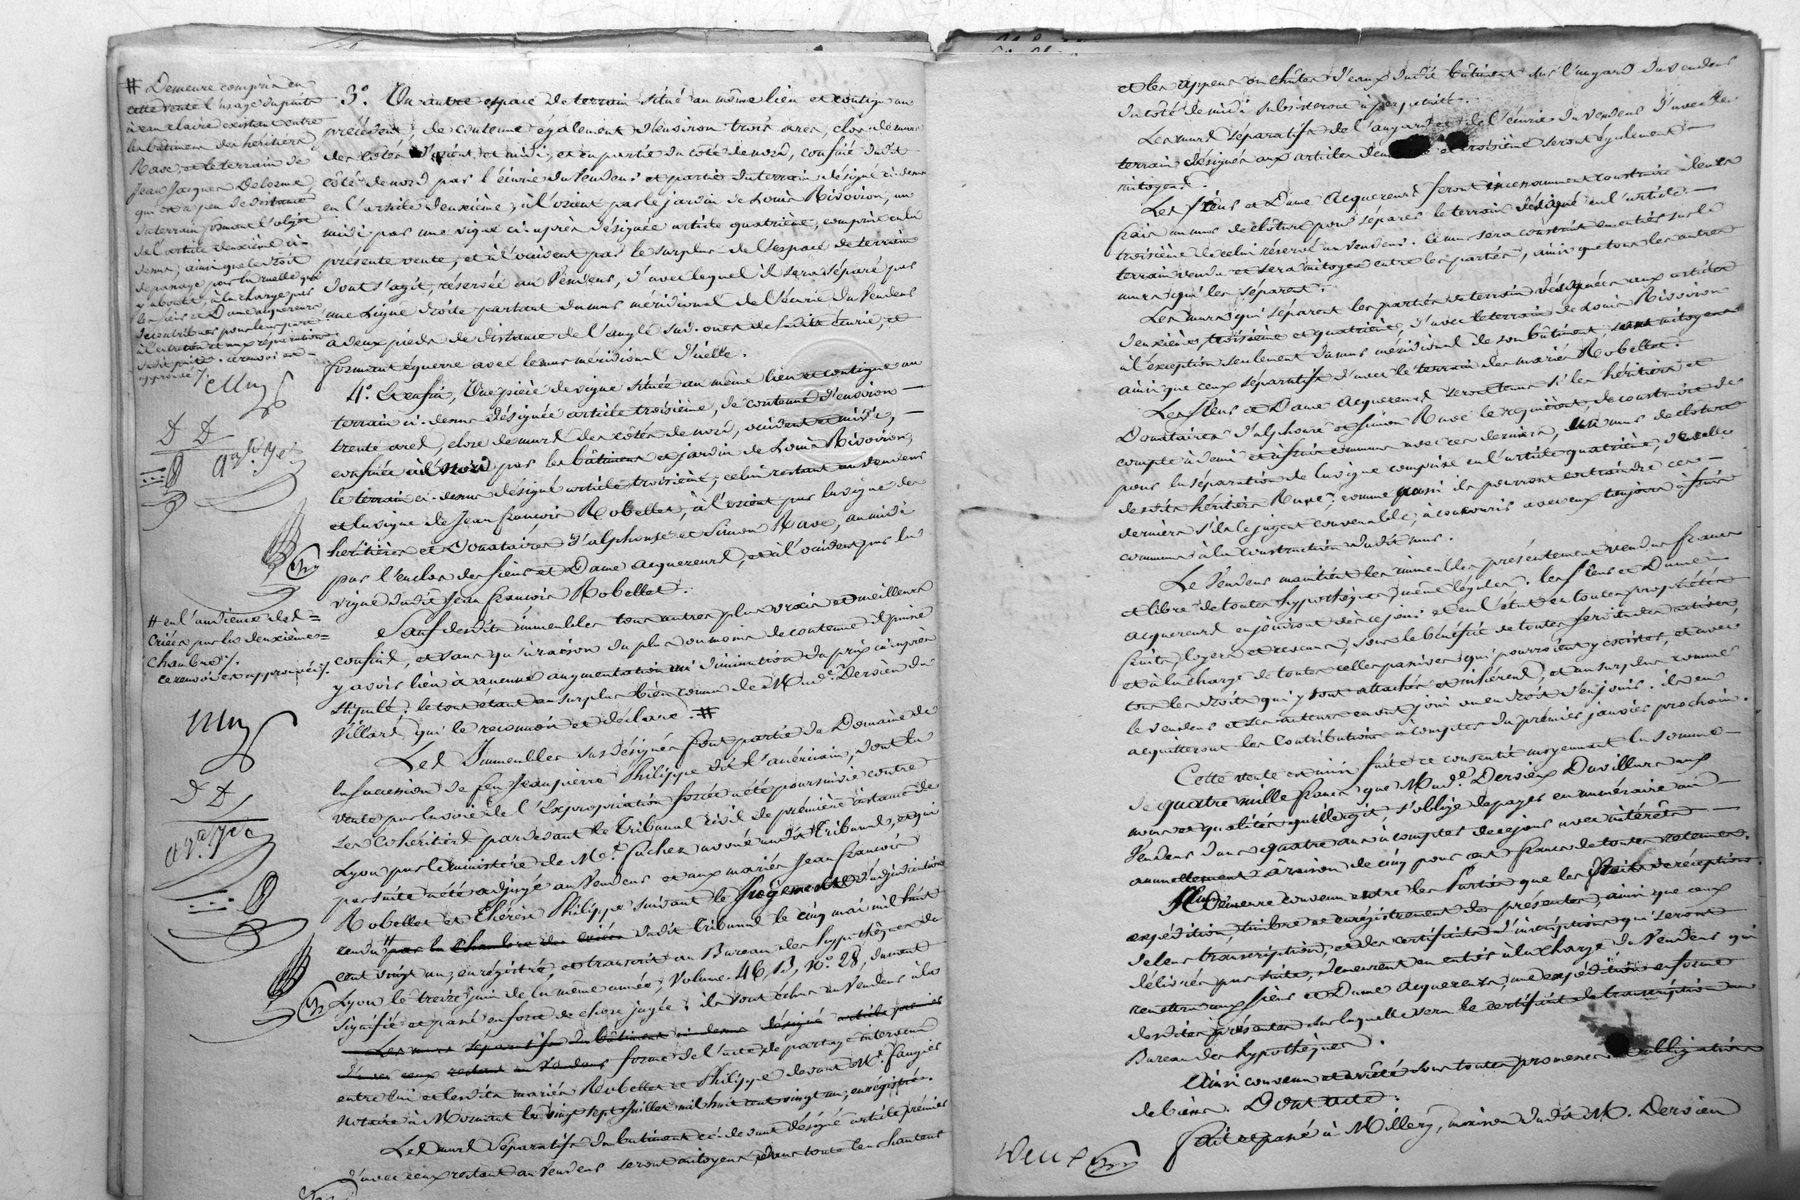 # Demeure compris en
cette vente l'usage du puits
à eau claire existant entre
les bâtiments des héritiers
Rave et le terrain de
Jean Jacques Delorme,
qui est à peu de distance
du terrain formant l'objet
de l'article deuxième ci-
dessus, ainsi que le droit
de passage pour la ruelle qui
y aboutit, à la charge par
les sieurs et Dame acquéreurs
de contribuer pour leur part
à l'entretien et aux réparations
dudit puits. ce renvoi est
approuvé /.
# en l'audience des
criées par la deuxième
chambre /.
ce renvoi est approuvé /.
3°. Un autre espace de terrain situé au même lieu et contigu au
précédent, de contenue également d'environ trois ares, clos de murs
des côtés d'orient et midi, et en partie du côté de nord, confiné dudit
côté de nord par l'écurie du vendeur et partie du terrain désigné ci-dessus
en l'article deuxième, à l'orient par le jardin de Louis Rivoiron, au
midi par une vigne ci-après désignée article quatrième, comprise en la
présente vente, et à l'occident par le surplus de l'espace de terrain
dont s'agit, réservé au Vendeur, d'avec lequel il sera séparé par
une Ligne droite partant du mur méridional de l'écurie du Vendeur
à deux pieds de distance de l'angle sud-ouest de ladite écurie, et
formant équerre avec le mur méridional d'icelle.
4°. Et enfin, Une pièce de vigne située au même lieu et contigue au
terrain ci-dessus désigné article troisième, de contenue d'environ
trente ares, close de murs des côtés de nord, occident et midi,
confinée au nord par les bâtiment et jardin de Louis Rivoiron,
le terrain ci-dessus désigné article troisième, celui restant au vendeur
et la vigne de Jean françois Robellet, à l'orient par la vigne des
héritiers et Donataires d'alphonse et Simon Rave, au midi
par l'enclos des sieurs et Dame acquéreurs, et à l'occident par la
vigne dudit Jean françois Robellet.
Sauf desdits immeubles tous autres plus vrais et meilleurs
confins, et sans qu'à raison du plus ou moins de contenue il puisse
y avoir lieu à aucune augmentation ni diminution du prix ci-après
stipulé; le tout étant au surplus bien connu de M. de Dervieu du
Villard, qui le reconnoît et déclare. #
Les Immeubles susdésignés font partie du Domaine de
la succession de feu Jean pierre Philippe dit l'américain, dont la
vente par la voie de l'Expropriation forcée a été poursuivie contre
ses cohéritiers pardevant le Tribunal civil de première instance de
Lyon par le ministère de Me. fuchez avoué audit Tribunal, et qui
par suite a été adjugé au Vendeur et aux mariés Jean françois
Robellet et Thérèse Philippe suivant le Jugement d'adjudication
rendu # par la chambre des criées dudit Tribunal le cinq mai mil huit
cent vingt un, enregistré, et transcrit au Bureau des hypothèques de
Lyon le treize juin de la même année, Volume 46, B, N°. 28, dûment
signifié et passé en force de chose jugée; ils sont échus au Vendeur à la
Les murs séparatifs du bâtiment ci-dessus désigné article premier
d'avec ceux restant au Vendeur forme de l'acte de partage intervenu
entre lui et lesdits mariés Robellet et Philippe devant Me. Faugier
notaire à Mornant le vingt sept Juillet mil huit cent vingt un, enregistré.
Les murs séparatifs du bâtiment ci-dessus désigné article premier
d'avec ceux restant au Vendeur seront mitoyens dans toute leur hauteur
et les appens ou chûtes d'eaux dudit bâtiment sur l'angard du vendeur
du côté de midi subsisteront à perpétuité.
Les murs séparatifs de l'angard et de l'écurie du vendeur d'avec les
terrains désignés aux articles deuxième et troisième seront également
mitoyens.
Les sieurs et Dame Acquéreurs feront incessamment construire à leurs
frais un mur de clôture pour séparer le terrain désigné en l'article
troisième de celui réservé au vendeur. Ce mur sera construit en entier sur le
terrain vendu et sera mitoyen entre les parties, ainsi que tous les autres
murs qui les séparent.
Les murs qui séparent les parties de terrain désignées aux articles
deuxième, troisième et quatrième, d'avec le terrain de Louis Rivoiron
à l'exception seulement du mur méridional de son bâtiment, sont mitoyens
ainsi que ceux séparatifs d'avec le terrain des mariés Robellet.
Les Sieurs et Dame Acquéreurs seront tenus si les héritiers et
Donataires d'alphonse et Simon Rave le requièrent, de construire de
compte à demi et à frais communs avec ces derniers, un mur de clôture
pour la séparation de la vigne comprise en l'article quatrième, de celle
desdits héritiers Rave; comme aussi ils pourront contraindre ces
derniers s'ils le jugent convenable, à concourir avec eux toujours à frais
communs à la construction dudit mur.
Le Vendeur maintient les immeubles présentement vendus francs
et libres de toutes hypothèques, même légales. les sieurs et Dame
acquéreurs en jouiront dès ce jour et en l'état en toutes propriétés
fruits, loyers et revenus, sous le bénéfice de toutes servitudes actives,
et à la charge de toutes celles passives qui pourroient y exister, et avec
tous les droits qui y sont attachés et inhérens, et au surplus comme
le vendeur et ses auteurs en ont joui ou eu droit d'en jouir. ils en
acquitteront les Contributions à compter du premier janvier prochain.
Cette vente est ainsi faite et consentie moyennant la somme
de quatre mille francs que M. de Dervieu Duvillars aux
noms et qualités qu'il agit, s'oblige de payer en numéraire au
Vendeur dans quatre ans à compter de ce jour avec intérêts
annuellement à raison de cinq pour cent francs de toutes retenues.
Il Demeure convenu entre les Parties que les frais de réception,
expédition, timbre et enregistrement des présentes, ainsi que ceux
de leur transcription, et des certificats d'inscriptions qui seront
délivrés par suite, demeurent en entier à la charge du Vendeur qui
remettra aux sieurs et Dame Acquéreurs, une expédition en forme
desdites présentes sur laquelle sera le certificat de transcription au
Bureau des hypothèques.
Ainsi convenu et arrêté sous toutes promesses et obligations
de biens. Dont acte.
Fait et passé à Millery, maison dudit M. Dervieu